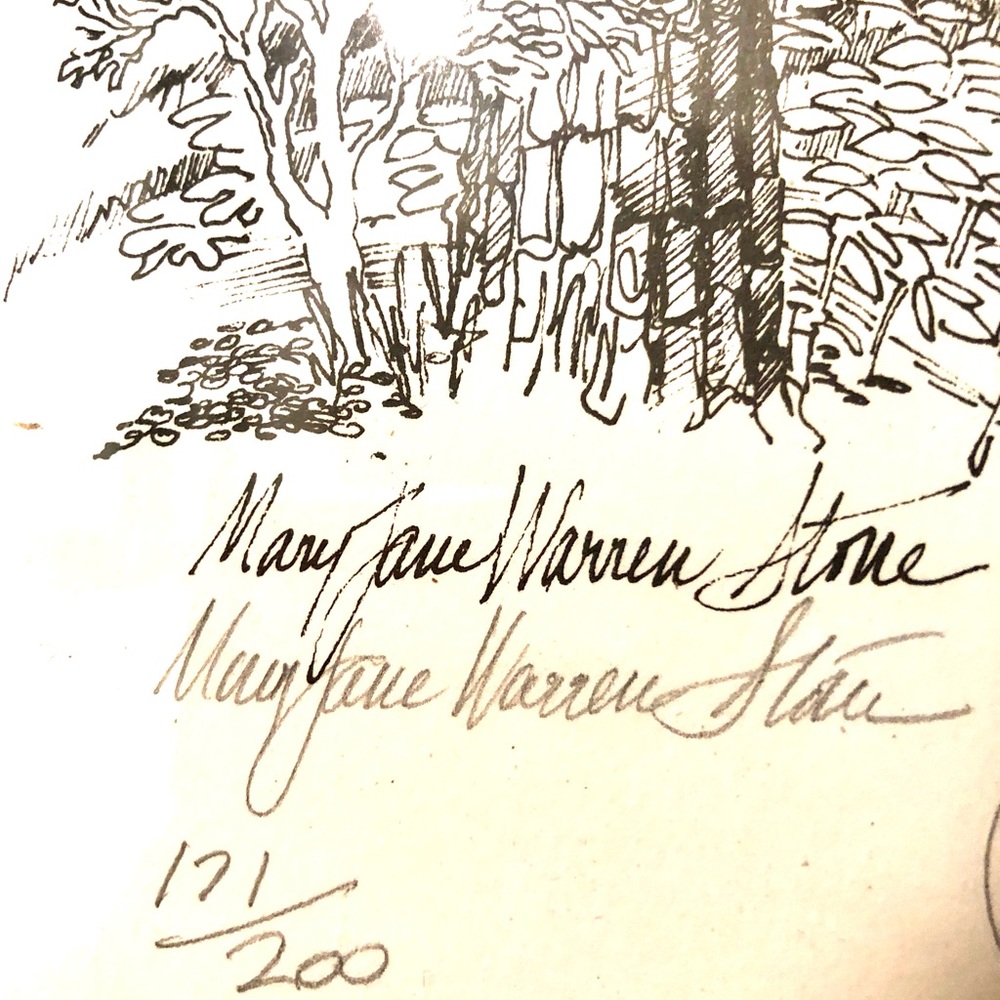 Mary Jane Warren Stone
Mary Jane Warren Stone
171/200